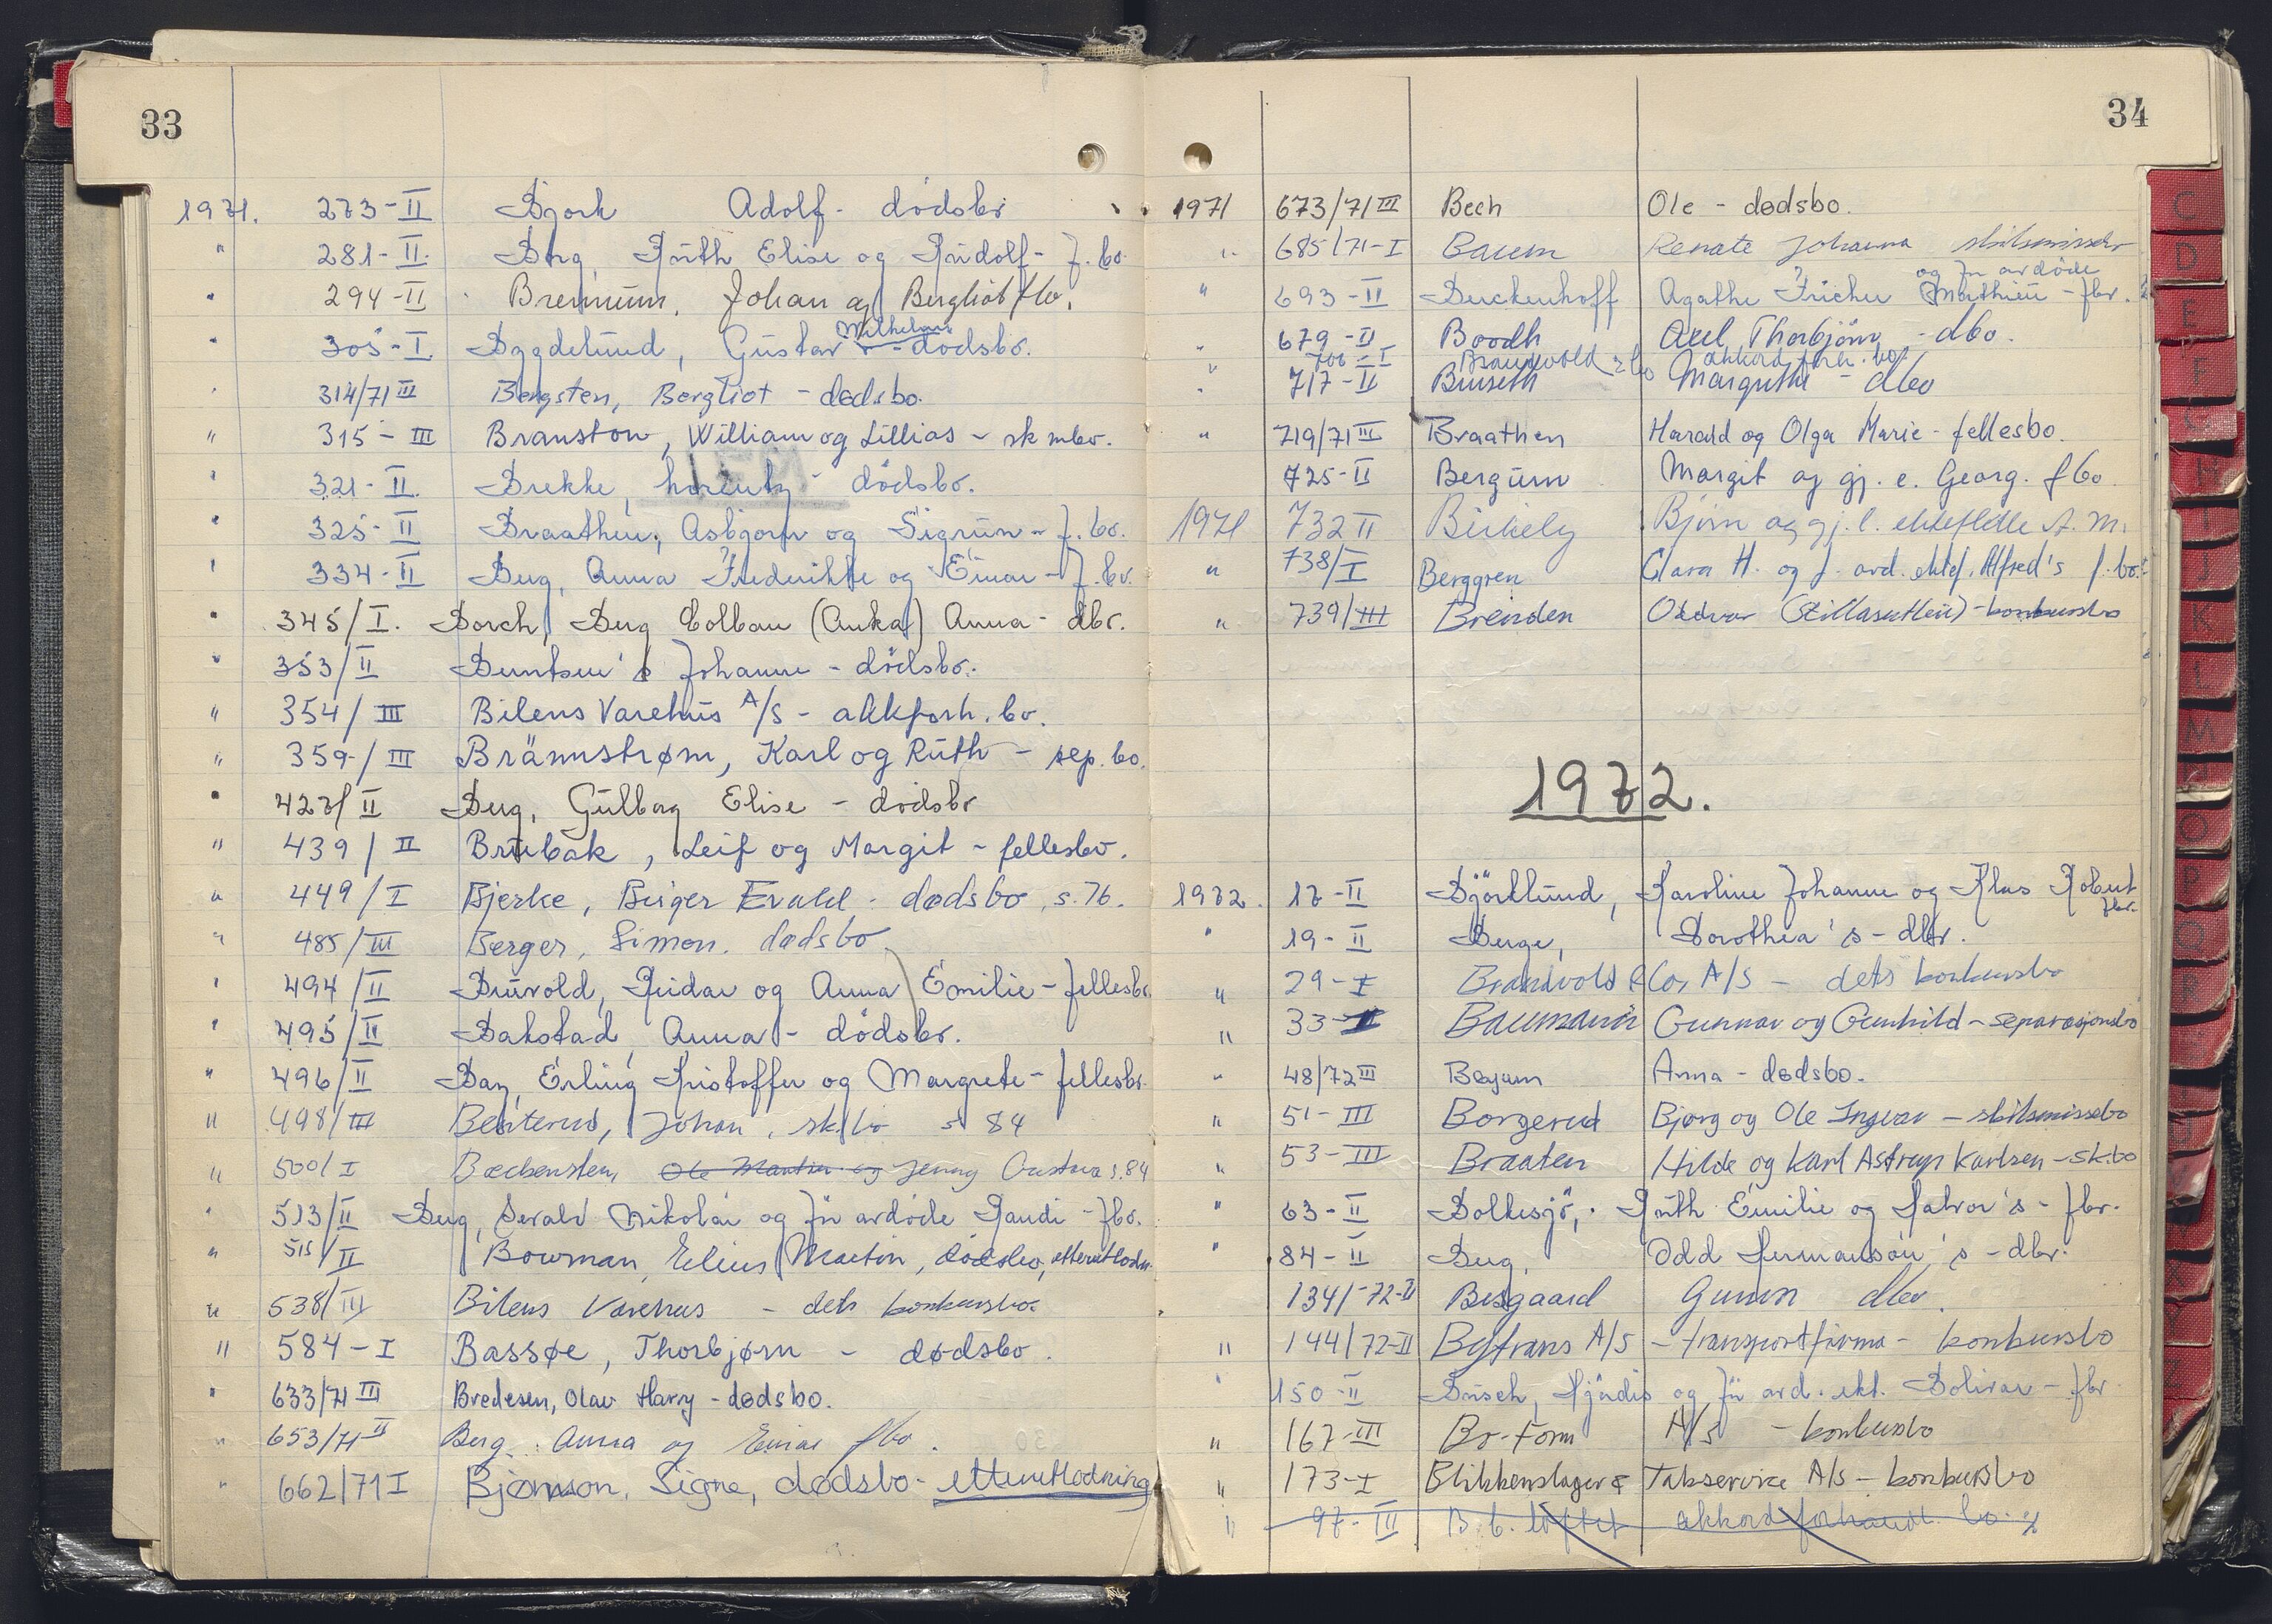 33
1971. 273-II Bjork Adolf - dödsbo
" 281-II. Berg, Ruth Elise og Rudolf - f.bo.
" 294-II Bremnum, Johan og Bergliot fbo.
Wilhelm
" 305-I Bygdelund, Gustav - dödsbo.
" 314/71 III Bergsten, Bergliot - dødsbo.
" 315-III Branston, William og Lillias - sk mbo.
" 321-II. Brekke, Lorentz - dödsbo.
" 325-II Braathen, Asbjorn og Sigrun - f.bo.
" 334-II Berg, Anna Frederikke og Einar - f.bo.
" 345/I. Borch, Berg Colban (Anka) Anna - dbo.
" 353/II Berntsen's Johanne - dödsbo.
" 354/III Bilens Varehus A/S - akkforh.bo.
" 359/III Brännstrøm, Karl og Ruth - sep.bo.
" 427/II Berg, Gulborg Elise - dödsbo
" 439/II Brubak, Leif og Margit - fellesbo.
" 449/I Bjerke, Birger Evald - dødsbo, s.76.
" 485/III Berger, Simon. dødsbo
" 494/II Buvold, Reidar og Anna Emilie - fellesbo.
" 495/II Bakstad, Anna - dödsbo.
" 496/II Bay, Erling Kristoffer og Margrete - fellesbo.
" 498/III Johan, sk.bo s 84
" 500/I Ole Martin og Jenny s.84
" 513/II Berg, Nikolai og fru avdöde Randi - fbo.
" 515/II Bowman, Martin, dødsbo, etterutlodn.
" 538/III Bilens Varehus - dets konkursbo.
" 584-I Bassøe, Thorbjørn - dødsbo.
" 633/71 III Bredesen, Olav Harry - dødsbo.
" 653/71 II Berg, Anna og Einar fbo.
" 662/71 I Bjørnson, Signe, dødsbo - etterutlodning
34
1971 673/71 III Bech Ole - dødsbo.
" 685/71-I Baum Renate Johanna skilsmissebo
og fru avdöde
" 693-II Berckenhoff Agathe Mathieu - fbo.
" 679-II Boodh Axel Thorbjörn - dbo.
" 706-I Brandvold & Co akkord forh.bo.
" 717-II Margrethe - dbo
" 719/71 III Braathen Harald og Olga Marie - fellesbo.
725-II Bergum Margit og gj. e. Georg. fbo.
1971 732 II Birkely Bjørn og gj.l. ektefelle A.M.
" 738/I Berggren Clara H. og f. avd. ektef. Alfred's f.bo.
" 739/III Brenden Oddvar - konkursbo
1972.
1972. 17-II Björklund, Karoline Johanne og Klas Robert
fbo.
" 19-II Berge, Dorothea's - dbo.
" 29-I Brandvold & Co, A/S - dets konkursbo
" 33- Baumann Gunnar og Gunhild - separasjonsbo
" 48/72 III Begum Anna - dødsbo.
" 51-III Borgerud Bjørg og Ole Ingvar - skilsmissebo
" 53-III Braaten Hilde og Karl Astrup Karlsen - sk.bo
" 63-II Bolkesjö, Ruth Emilie og Halvor's - fbo.
" 84-II Berg, Odd Hermansön's - dbo.
134/-72-II Besgaard Gunvor dbo.
" 144/72-II Bytrans A/S - transportfirma - konkursbo
" 150-II Busch, Hjördis og fru avd. ekt. Bolivar - fbo
" 167-III Bo-Form A/S - konkursbo
" 173-I Blikkenslager & Takservice A/S - konkursbo
" 97-III B.b. löftet akkord forhandl. bo.
C
D
E
F
G
H
I
J
K
L
M
N
O
P